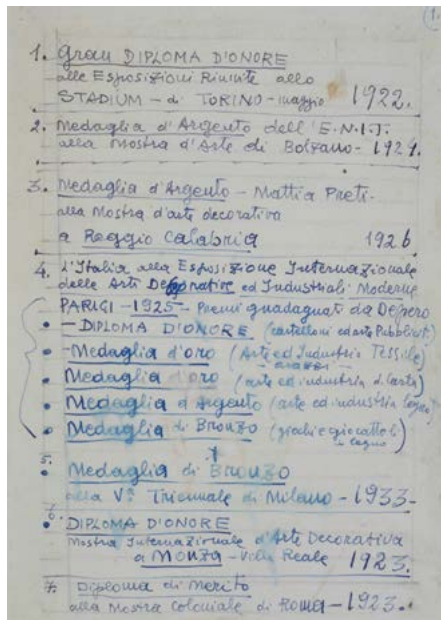 1.
1. Gran DIPLOMA D'ONORE
alle Esposizioni Riunite allo
STADIUM – di TORINO – maggio 1922.
2. Medaglia d'Argento dell'E.N.I.T.
alla Mostra d'Arte di Bolzano – 1924.
3. Medaglia d'Argento – Mattia Preti.
alla Mostra d'arte decorativa
a Reggio Calabria 1926
4. L'Italia alla Esposizione Internazionale
delle Arti Decorative ed Industriali Moderne
PARIGI – 1925 – Premi guadagnati da Depero
• – DIPLOMA D'ONORE (cartelloni ed arte Pubblicit.)
• – Medaglia d'oro (Arti ed Industria Tessile)
– arazzi –
• Medaglia d'oro (arte ed industria d. Carta)
• Medaglia d'Argento (arte ed industria legno)
• Medaglia di Bronzo (giochi e giocattoli)
– legno
5.
• Medaglia di Bronzo
alla Vª Triennale di Milano – 1933 –
6.
• DIPLOMA D'ONORE
Mostra Internazionale d'Arte Decorativa
a MONZA – Villa Reale 1923.
7. Diploma di Merito
alla Mostra Coloniale di Roma – 1923.